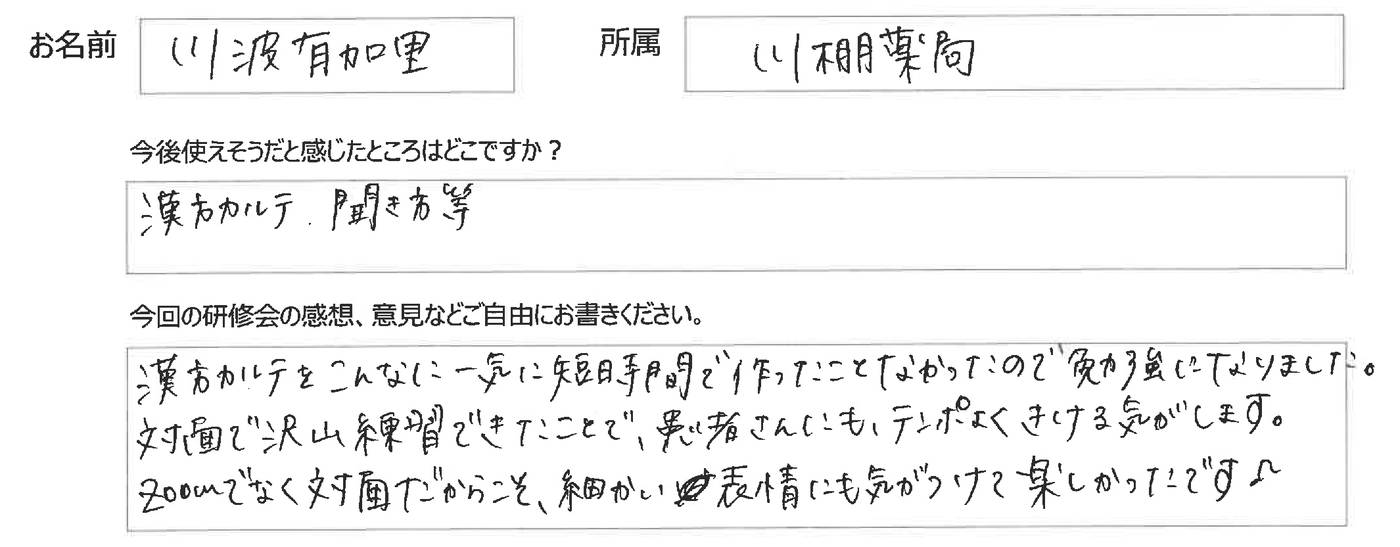 お名前 川波有加里 所属 川棚薬局
今後使えそうだと感じたところはどこですか？
漢方カルテ、聞き方等
今回の研修会の感想、意見などご自由にお書きください。
漢方カルテをこんなに一気に短時間で作ったことなかったので勉強になりました。
対面で沢山練習できたことで、患者さんにも、テンポよくきける気がします。
zoomでなく対面だからこそ、細かい表情にも気がつけて楽しかったです♪